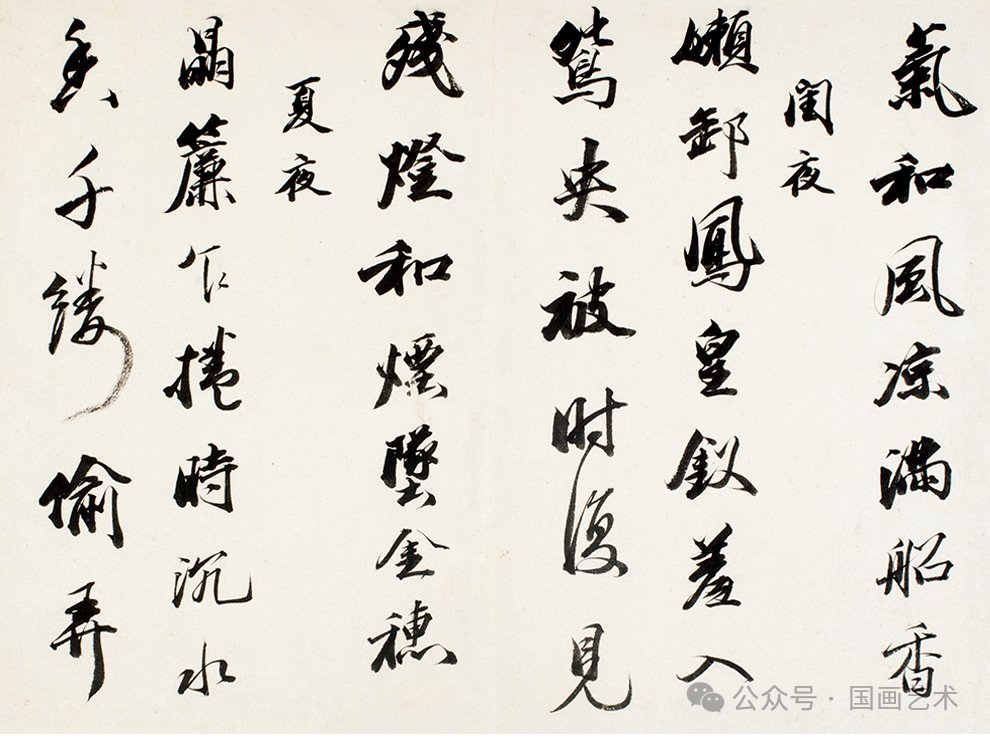 氣和風凉滿船香
閨夜
嬾卸鳳皇釵羞入
鴛央被时復見
殘燈和煙墜金穗
夏夜
晶簾乍捲時沉水
香千縷偷弄
公众号 · 国画艺术